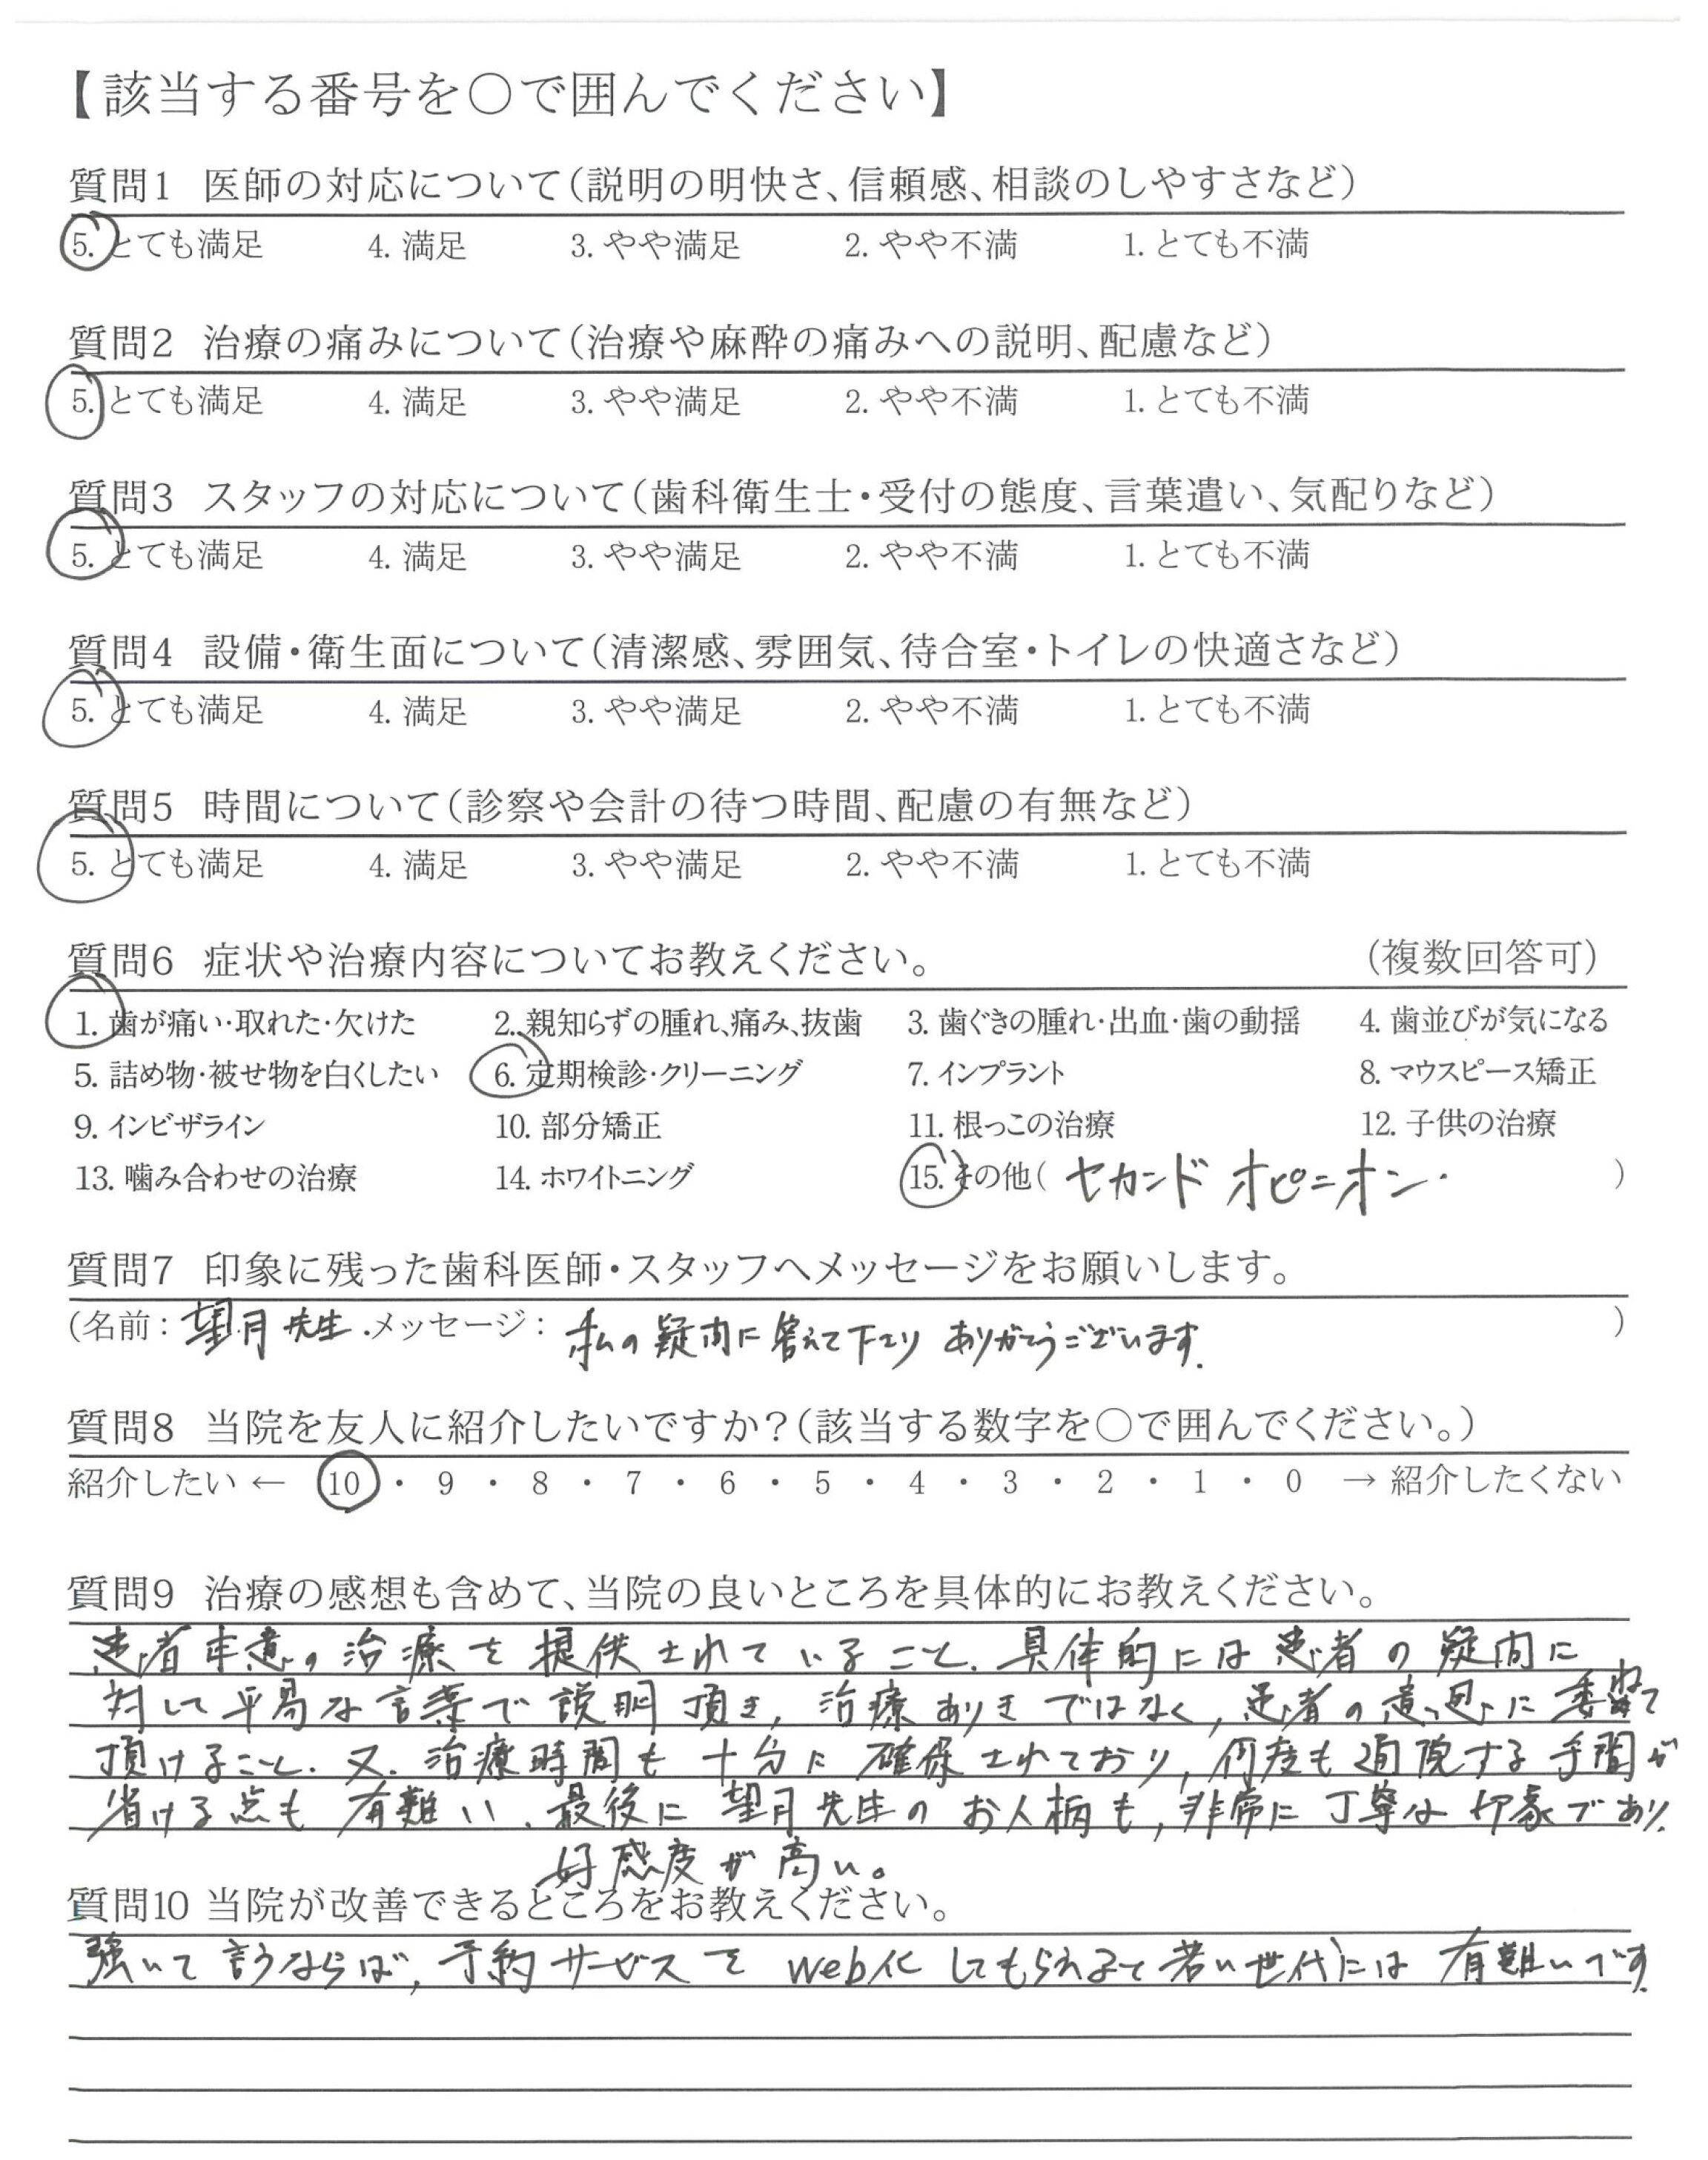 【該当する番号を○で囲んでください】
質問1 医師の対応について(説明の明快さ、信頼感、相談のしやすさなど)
5. とても満足 4. 満足 3. やや満足 2. やや不満 1. とても不満
質問2 治療の痛みについて(治療や麻酔の痛みへの説明、配慮など)
5. とても満足 4. 満足 3. やや満足 2. やや不満 1. とても不満
質問3 スタッフの対応について(歯科衛生士・受付の態度、言葉遣い、気配りなど)
5. とても満足 4. 満足 3. やや満足 2. やや不満 1. とても不満
質問4 設備・衛生面について(清潔感、雰囲気、待合室・トイレの快適さなど)
5. とても満足 4. 満足 3. やや満足 2. やや不満 1. とても不満
質問5 時間について(診察や会計の待つ時間、配慮の有無など)
5. とても満足 4. 満足 3. やや満足 2. やや不満 1. とても不満
質問6 症状や治療内容についてお教えください。 (複数回答可)
1. 歯が痛い・取れた・欠けた 2. 親知らずの腫れ、痛み、抜歯 3. 歯ぐきの腫れ・出血・歯の動揺 4. 歯並びが気になる
5. 詰め物・被せ物を白くしたい 6. 定期検診・クリーニング 7. インプラント 8. マウスピース矯正
9. インビザライン 10. 部分矯正 11. 根っこの治療 12. 子供の治療
13. 噛み合わせの治療 14. ホワイトニング 15. その他( セカンド オピニオン. )
質問7 印象に残った歯科医師・スタッフへメッセージをお願いします。
(名前: 望月先生.メッセージ: 私の疑問に答えて下さり ありがとうございます. )
質問8 当院を友人に紹介したいですか?(該当する数字を○で囲んでください。)
紹介したい ← 10 ・ 9 ・ 8 ・ 7 ・ 6 ・ 5 ・ 4 ・ 3 ・ 2 ・ 1 ・ 0 → 紹介したくない
質問9 治療の感想も含めて、当院の良いところを具体的にお教えください。
患者本意の治療を提供されていること. 具体的には患者の疑問に
対して平易な言葉で説明頂き, 治療ありきではなく, 患者の意思に委ねて
頂けること. 又. 治療時間も十分に確保されており, 何度も通院する手間が
省ける点も有難い. 最後に望月先生のお人柄も, 非常に丁寧な印象であり,
好感度が高い。
質問10 当院が改善できるところをお教えください。
強いて言うならば, 予約サービスをweb化してもらえると若い世代には有難いです.